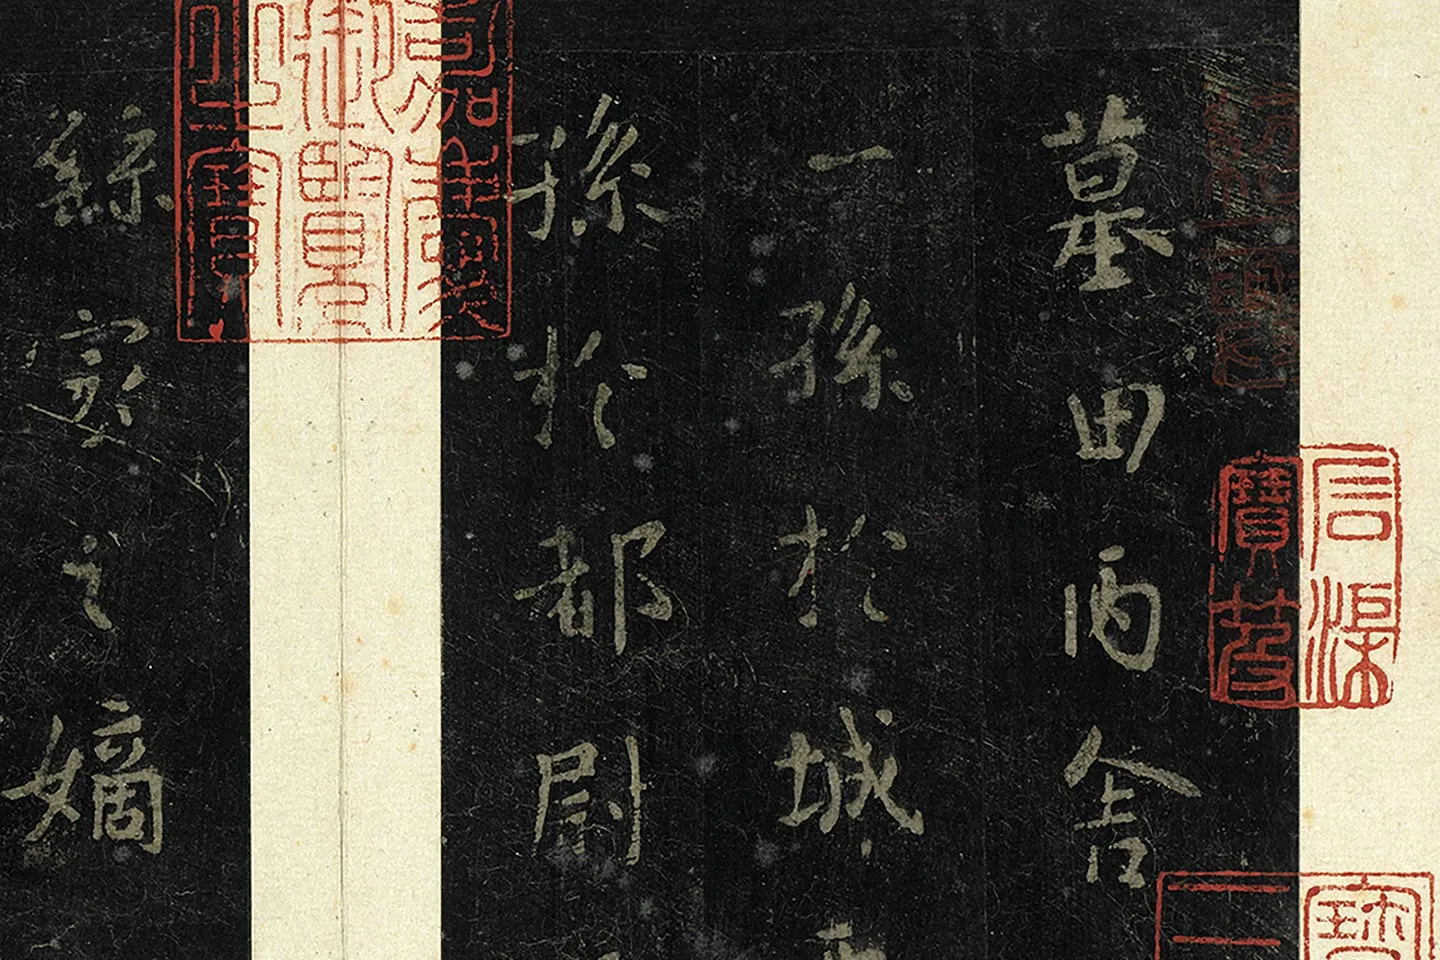 墓田丙舍
一孫於城
孫於都尉
繇家之嫡
石渠寶笈
嘉慶御覽之寶